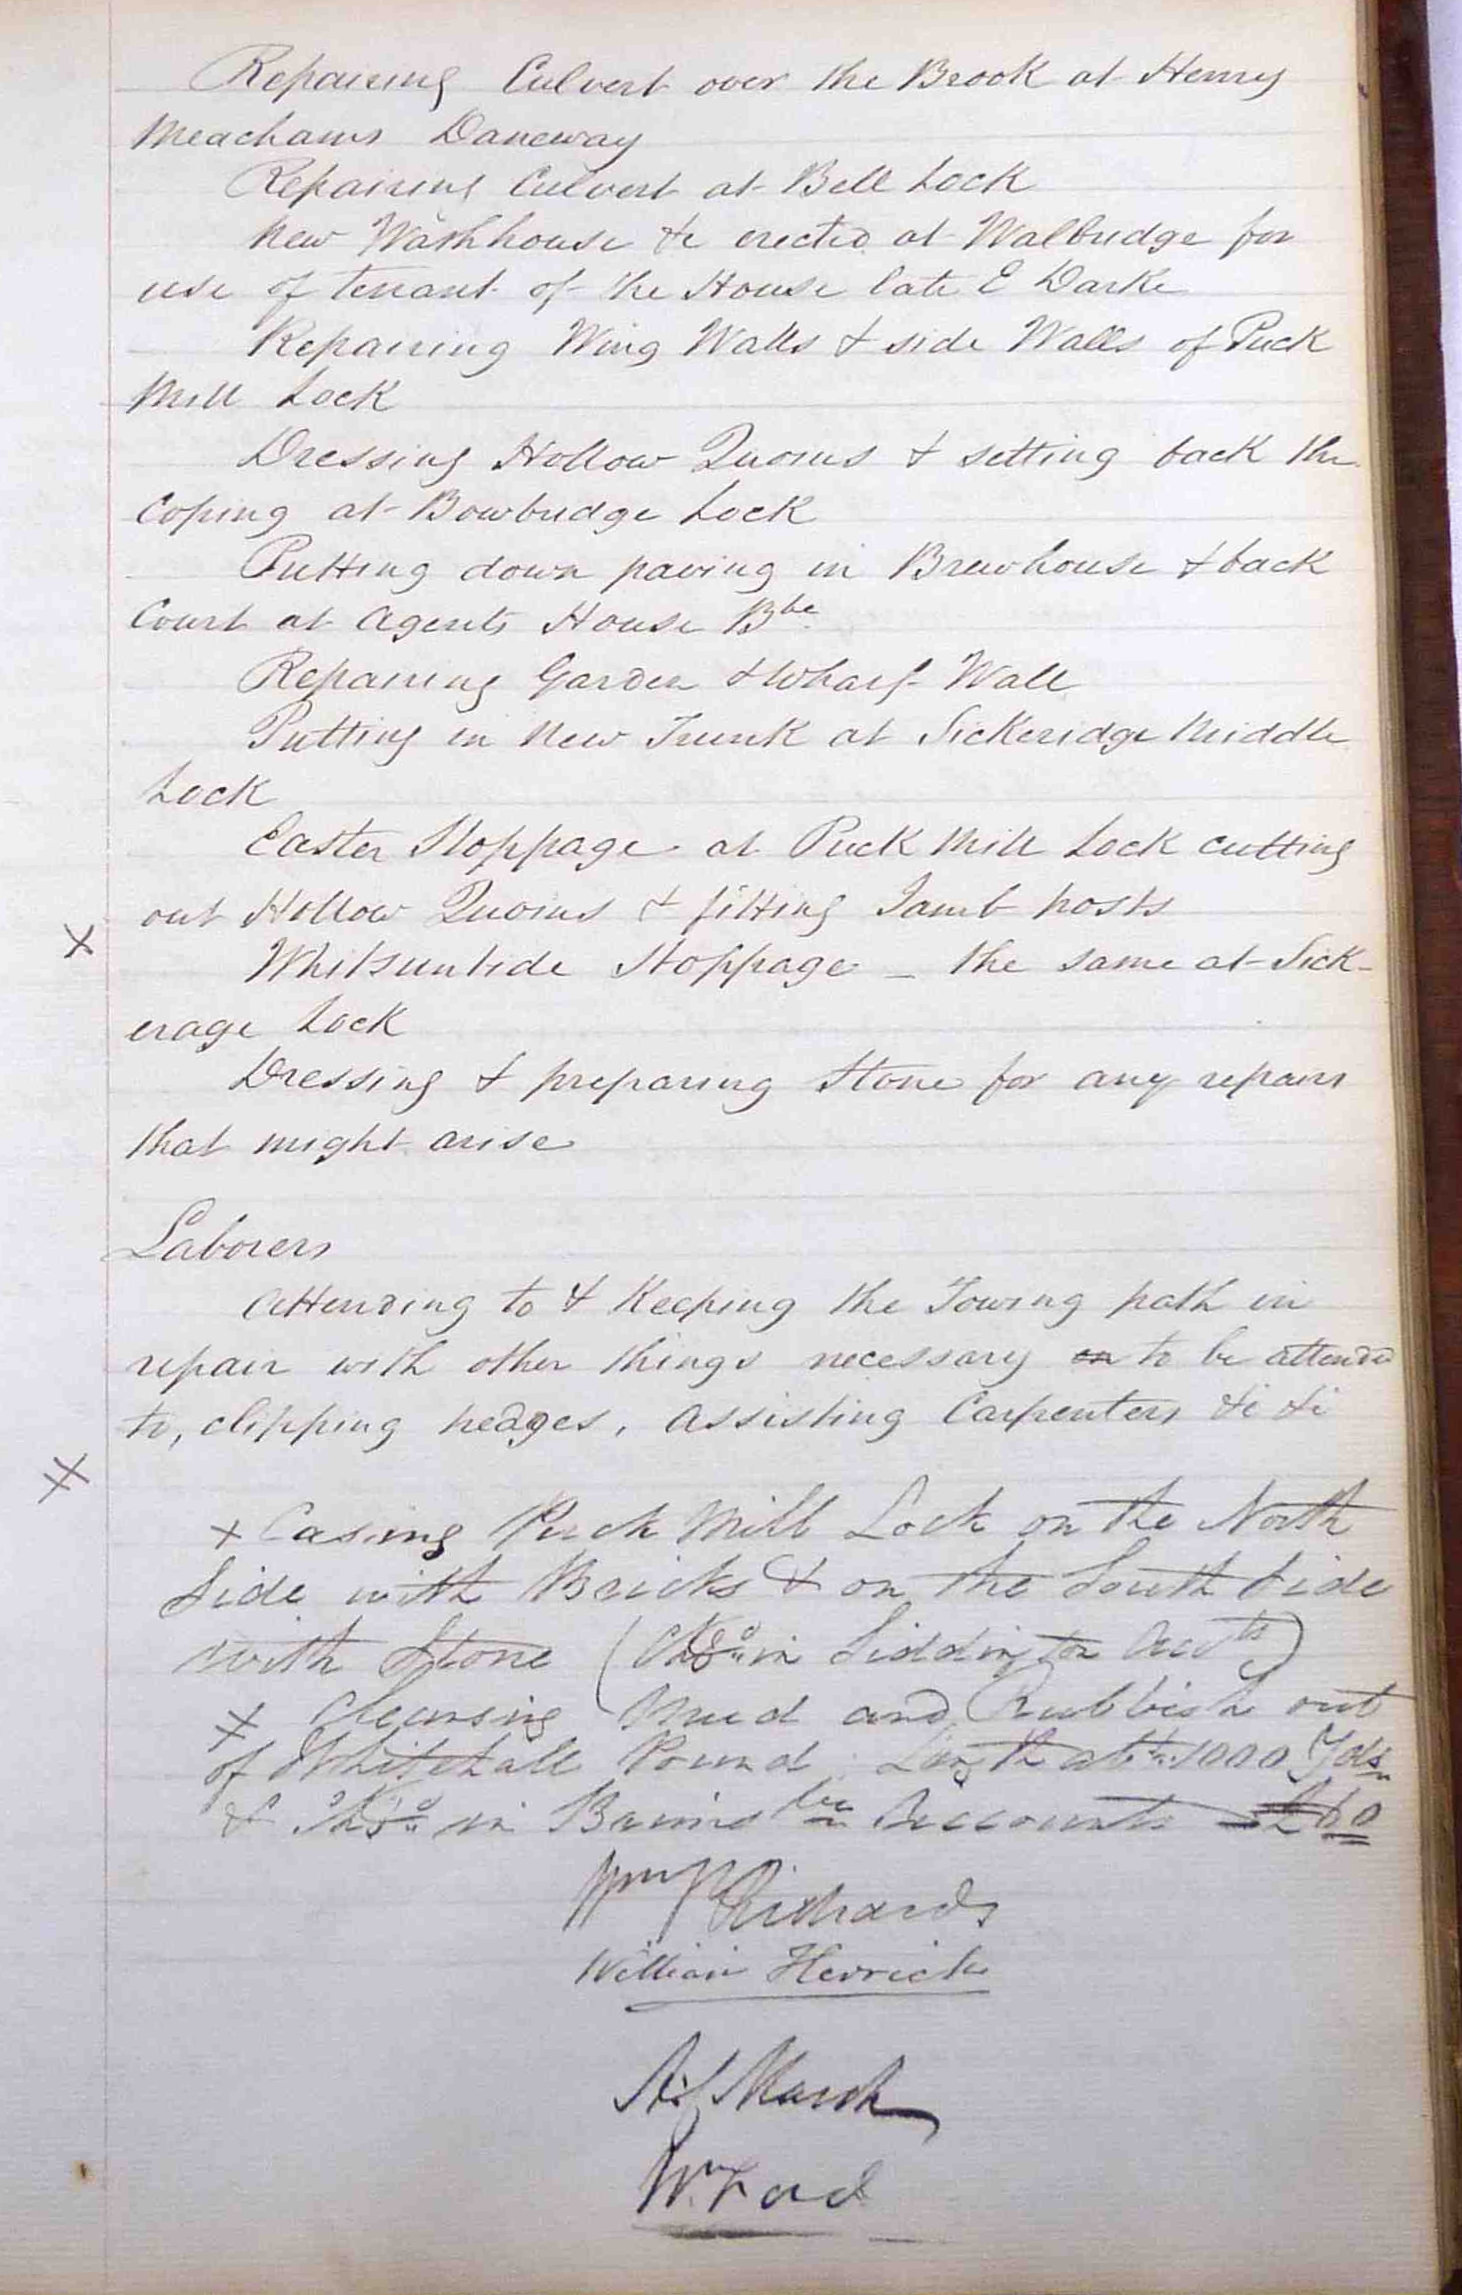 Repairing Culvert over the Brook at Henry
Meachams Daneway
Repairing Culvert at Bell Lock
New Washhouse &c erected at Walbridge for
use of tenant of the House late E Darke
Repairing Wing Walls & side Walls of Puck
Mill Lock
Dressing Hollow Quoins & setting back the
Coping at Bowbridge Lock
Putting down paving in Brewhouse & back
Court at Agents House Bbe
Repairing Garden & Wharf Wall
Putting in New Trunk at Sickeridge Middle
Lock
Easter Stoppage at Puck Mill Lock cutting
out Hollow Quoins & fitting Jamb posts
X Whitsuntide Stoppage – the same at Sick-
erage Lock
Dressing & preparing Stone for any repairs
that might arise
Laborers
Attending to & Keeping the Towing path in
repair with other things necessary on to be attended
to, clipping hedges, assisting Carpenters &c &c
+ Casing Puck Mill Lock on the North
Side with Bricks & on the South Side
with Stone ( in Siddington Accts)
Cleansing Mud and Rubbish out
of Whitehall Pound Length abt 1000 Yds
& in Brims Accounts £60
Richards
William Herrick
Marsh
Wm Ford